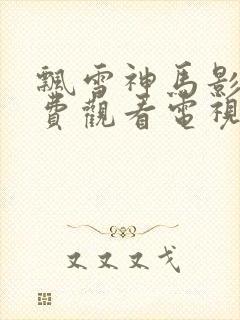 飄雪神馬影
費觀看電視
又又又戈